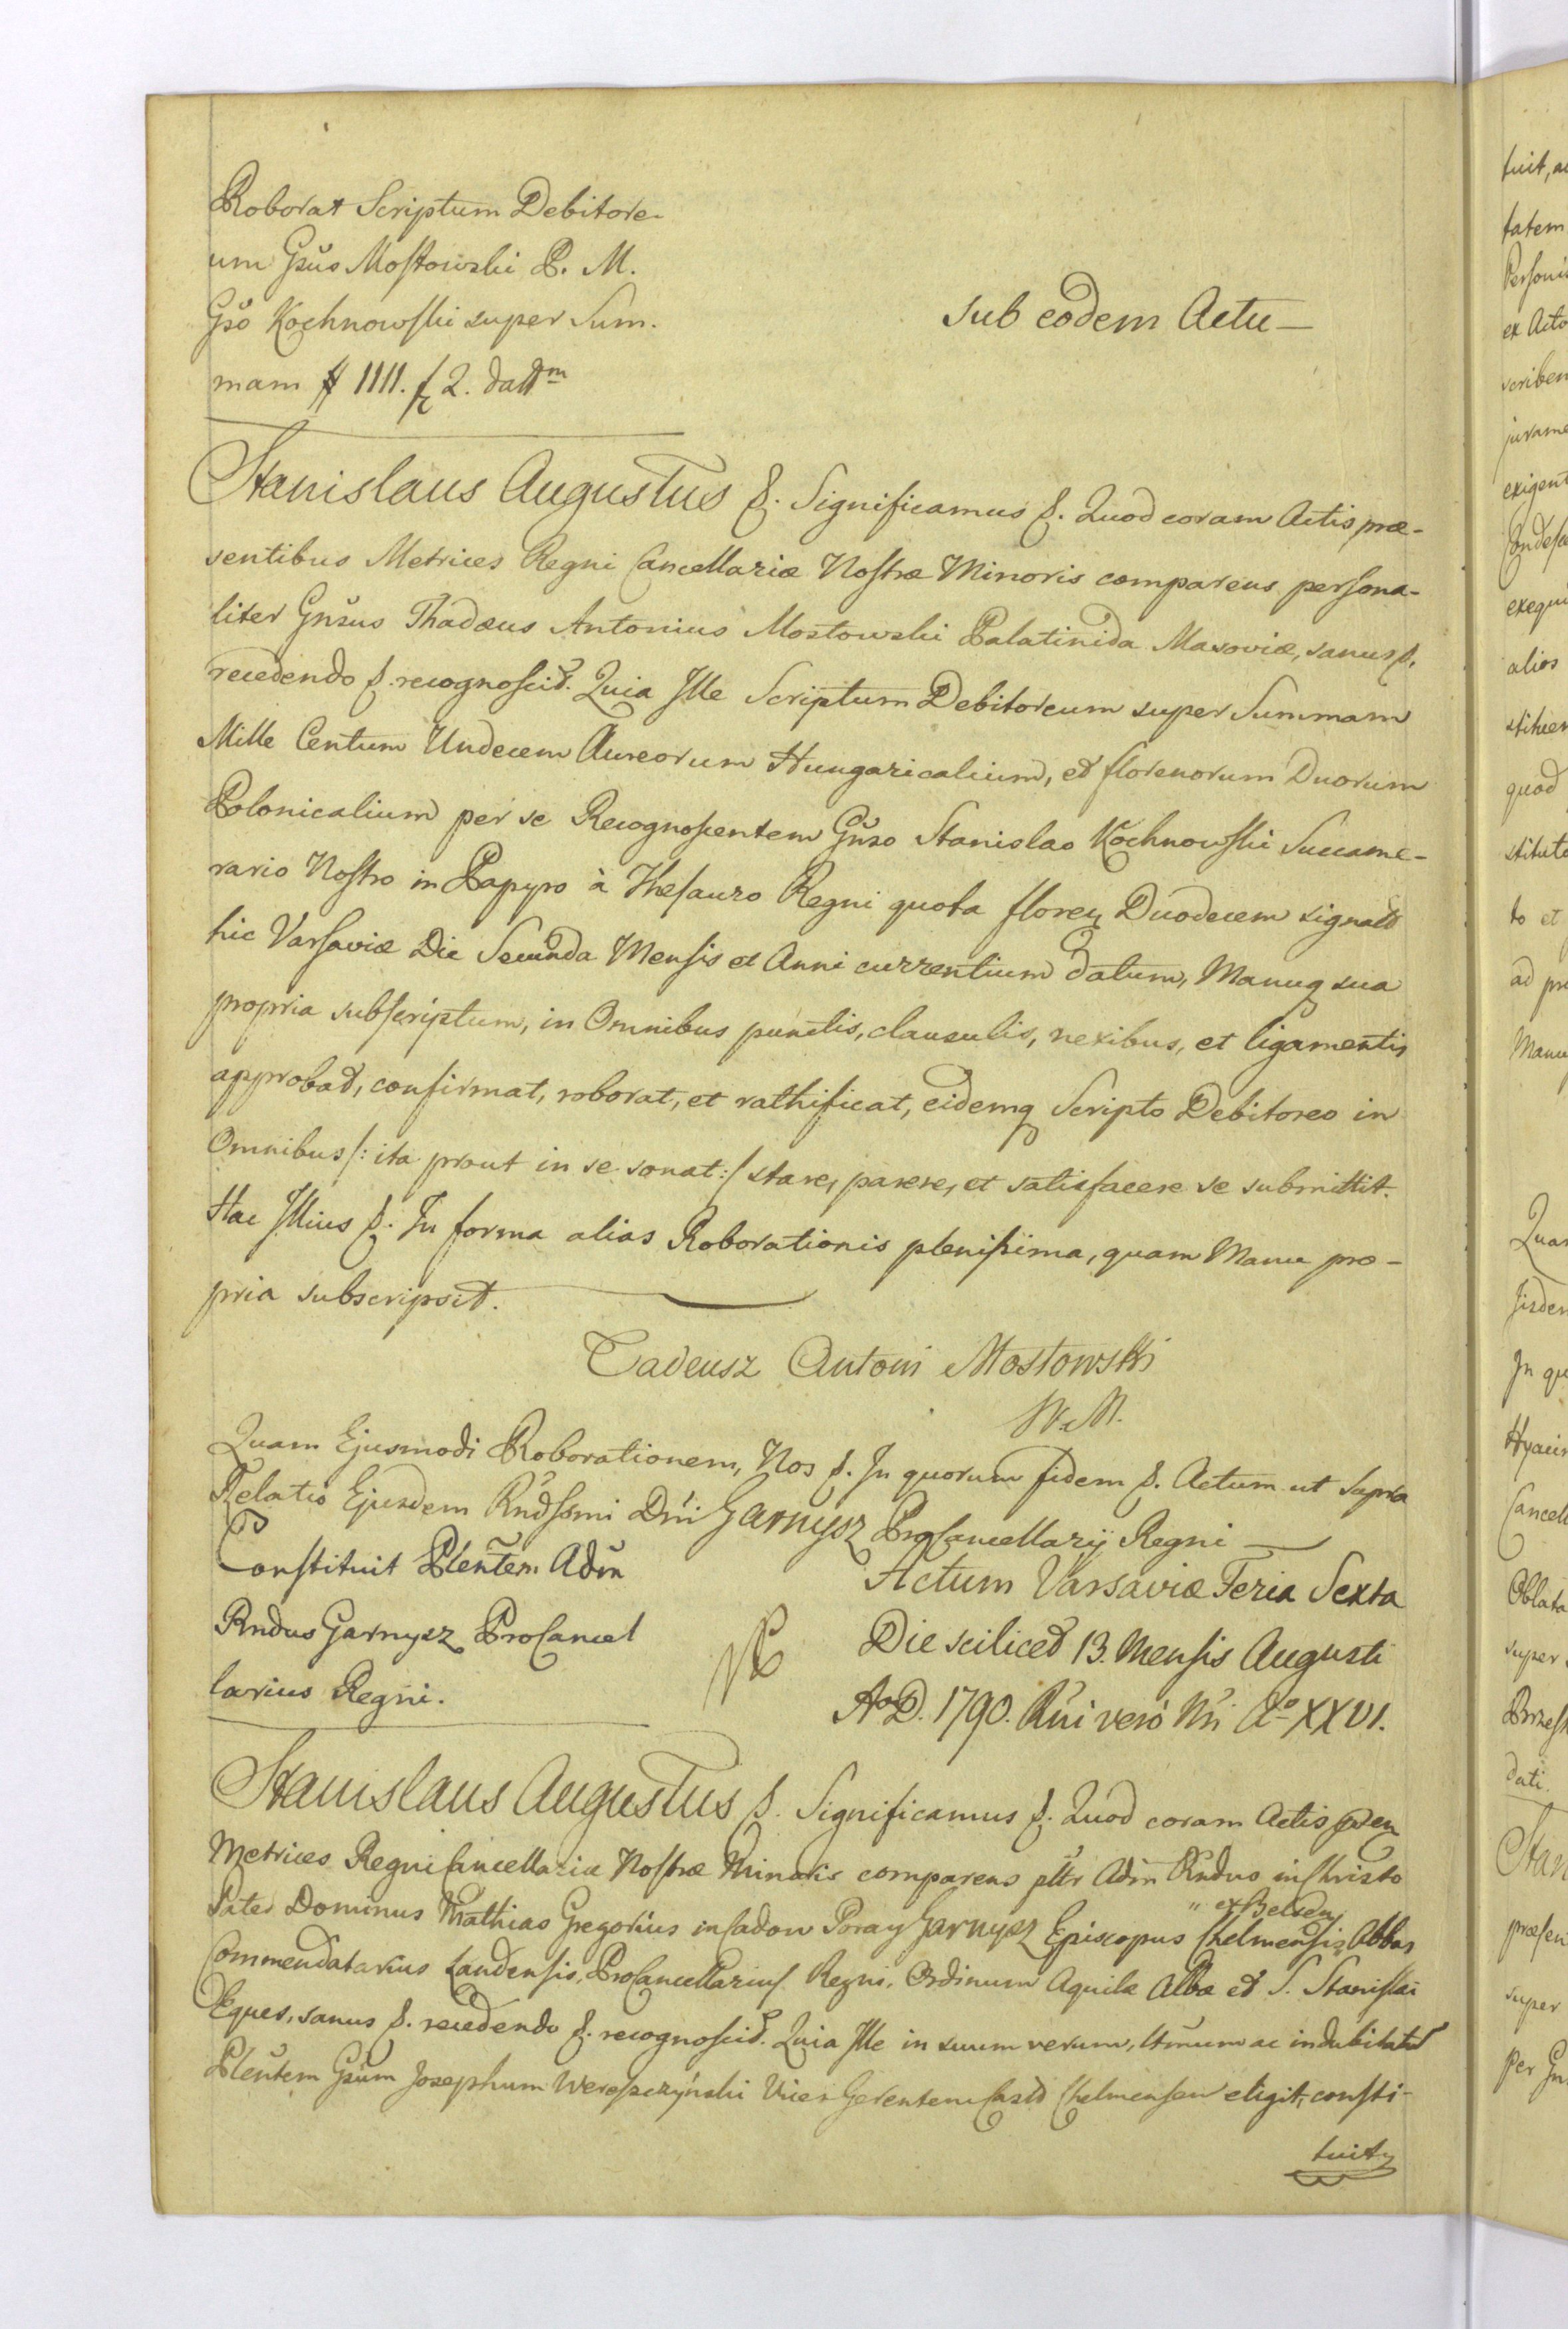 Roborat Scriptum Debitore-
um Gsũs Mostowski P. M.
Gsõ Kochnowski super Sum-
mam # 1111. f 2. dattm
Sub eodem Actu —
Stanislaus Augustus &. Significamus &. Quod coram Actis præ-
sentibus Metrices Regni Cancellariæ Nostræ Minoris comparens persona-
liter Gnsus Thadæus Antonius Mostowski Palatinida Masoviæ, sanus &.
recedendo &. recognoscit. Quia Ille Scriptum Debitoreum super Summam
Mille Centum Undecem Aureorum Hungaricalium, et florenorum Duorum
Polonicalium per se Recognoscentem Gnso Stanislao Kochnowski Succame-
rario Nostro in Papyro à Thesauro Regni quota floren Duodecem signatô
hic Varsaviæ Die Secunda Mensis et Anni currentium datum, Manuq sua
propria subscriptum, in Omnibus punctis, clausulis, nexibus, et ligamentis
approbat, confirmat, roborat, et rathificat, eidemq Scripto Debitoreo in
Omnibus /: ita prout in se sonat :/ stare, parere, et satisfacere se submittit.
Hac Illius &. In forma alias Roborationis plenissima, quam Manu pro-
pria subscripsit.
Tadeusz Antoni Mostowski
W. M.
Quam Ejusmodi Roborationem, Nos &. In quorum fidem &. Actum ut supra
Relatio Ejusdem Rndssmi Dni Garnysz ProCancellarij Regni —
Constituit Plentem Adm
Rndus Garnysz ProCancel
larius Regni.
Actum Varsaviæ Feria Sexta
Die scilicet 13. Mensis Augusti
AoD. 1790. Rni verò Nri Ao XXVI.
Stanislaus Augustus &. Significamus &. Quod coram Actis pren
Metrices Regni Cancellariæ Nostræ Minoris comparens pltr Adm Rndus in Christo
" et Belzen
Pater Dominus Mathias Gregorius in Cadow Poray Garnysz Episcopus Chelmensis Abbas
Commendatarius Landensis, ProCancellarius Regni, Ordinum Aquilæ Albæ et S. Stanislai
Eques, sanus &. recedendo &. recognoscit. Quia Ille in suum verum, ltmum ac indubitatū
Plentem Gsũm Josephum Wereszczyński Vices Gerentem Chelmensem eligit, consti-
tuitq